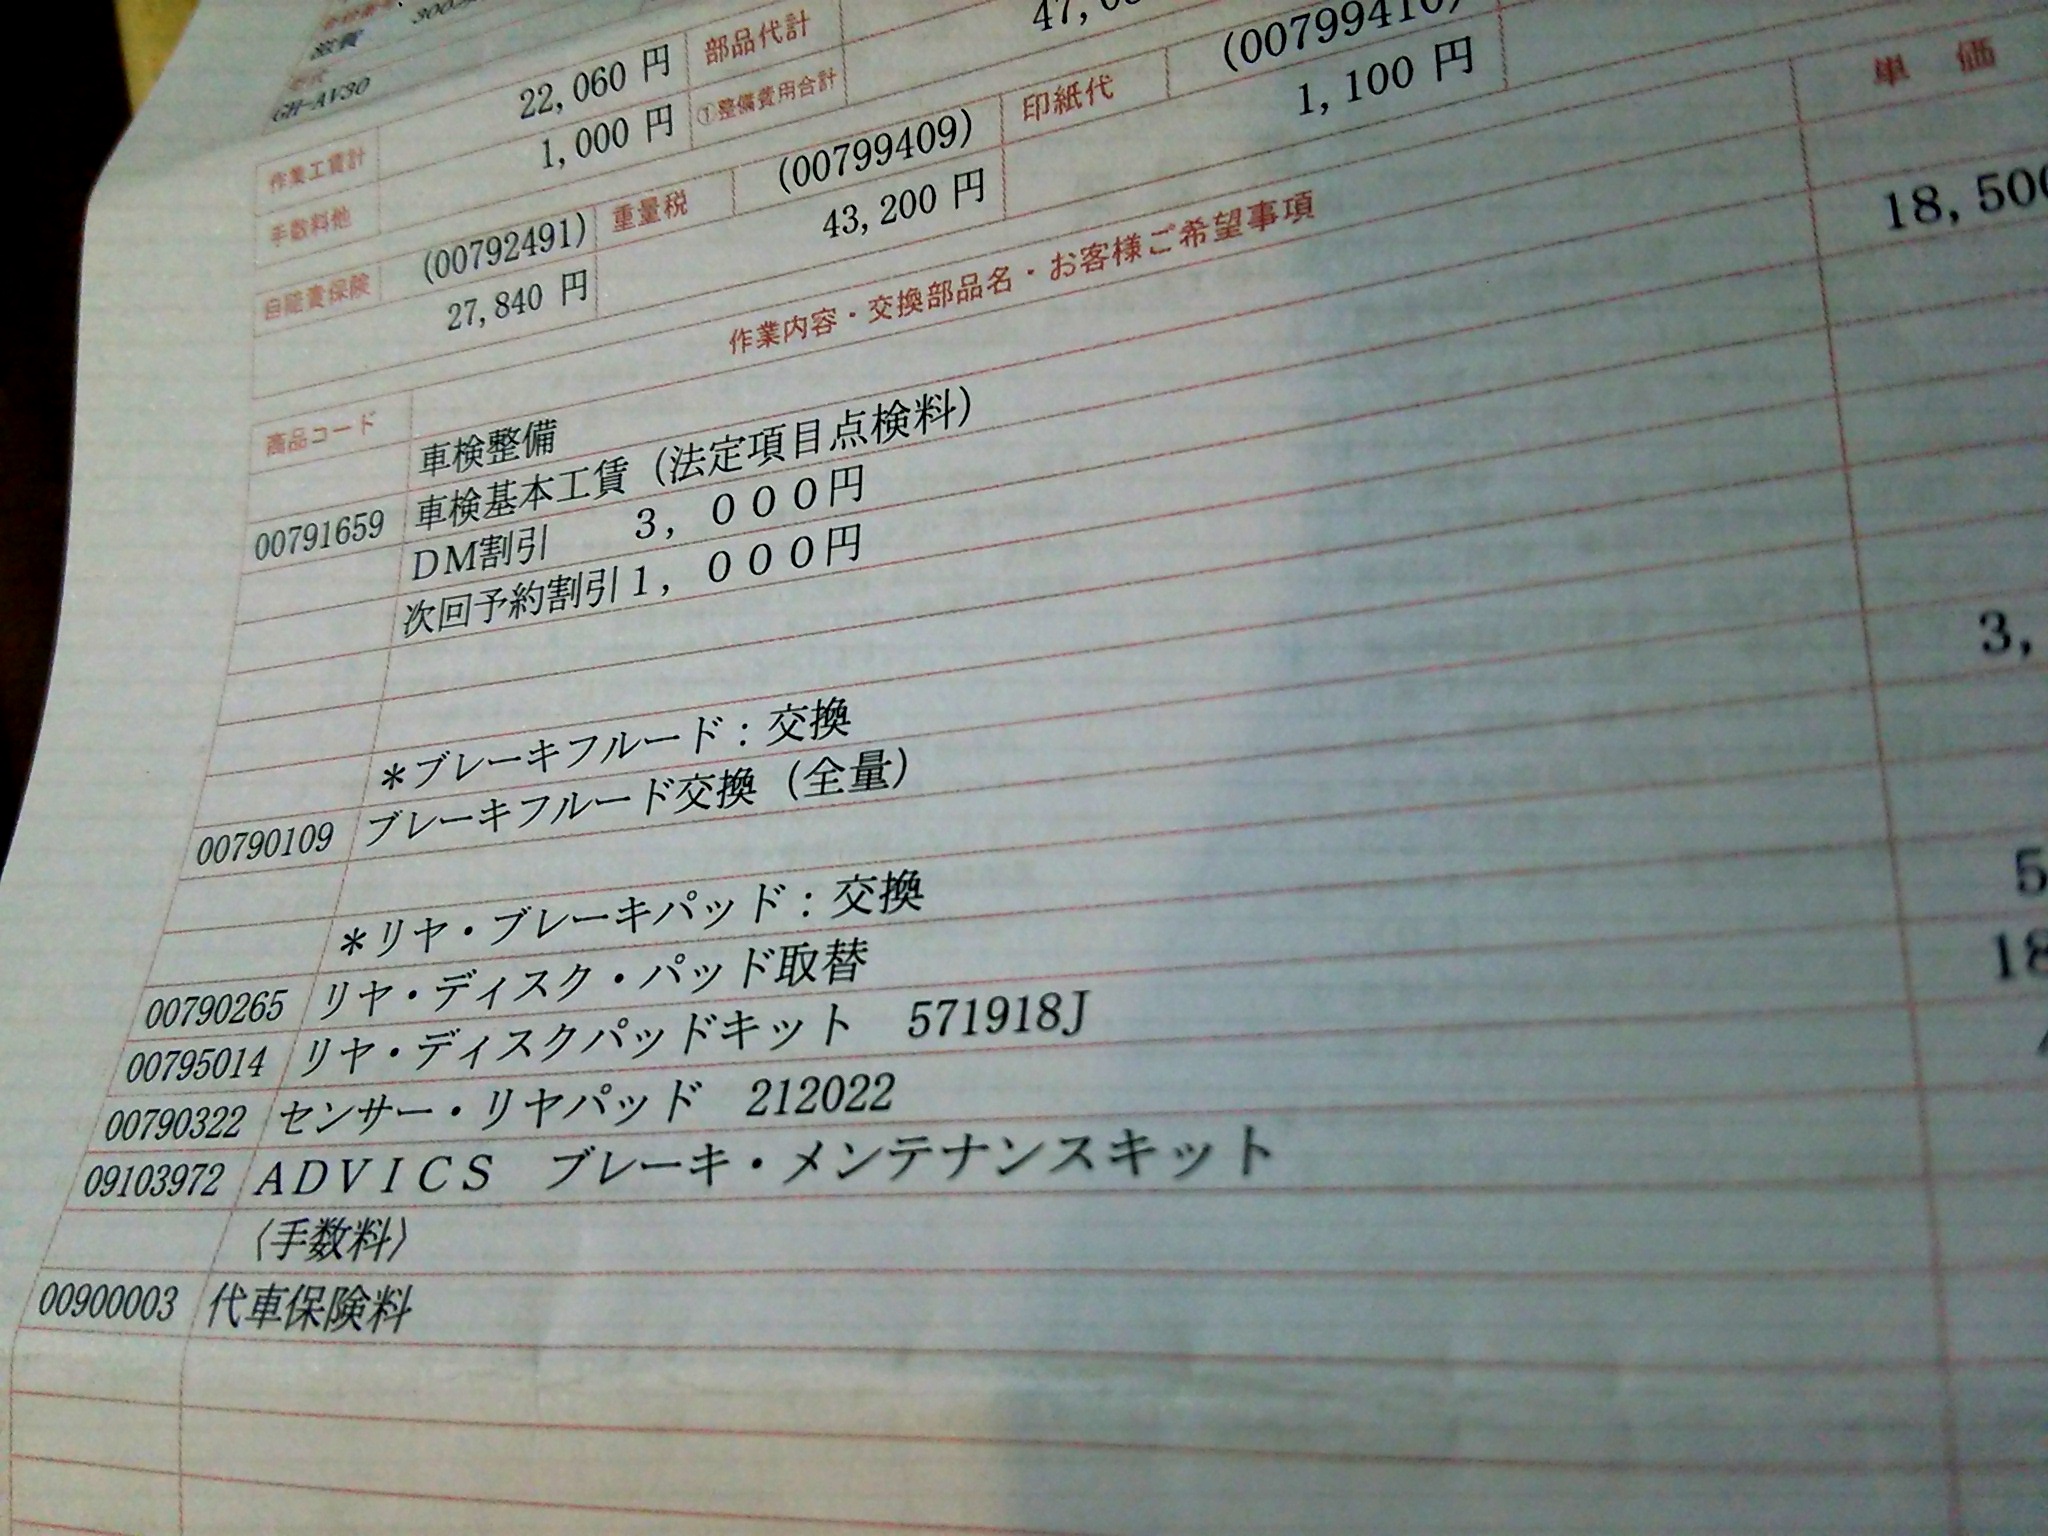 滋賀
GH-AV30
作業工賃計 22,060 円 部品代計
手数料他 1,000 円 ①整備費用合計
自賠責保険 (00792491) 重量税 (00799409) 印紙代 (00799410)
27,840 円 43,200 円 1,100 円
商品コード 作業内容・交換部品名・お客様ご希望事項 単 価
車検整備
00791659 車検基本工賃(法定項目点検料) 18,500
DM割引 3,000円
次回予約割引1,000円
*ブレーキフルード:交換
00790109 ブレーキフルード交換(全量) 3,
*リヤ・ブレーキパッド:交換
00790265 リヤ・ディスク・パッド取替 5
00795014 リヤ・ディスクパッドキット 571918J 18
00790322 センサー・リヤパッド 212022
09103972 ADVICS ブレーキ・メンテナンスキット
〈手数料〉
00900003 代車保険料